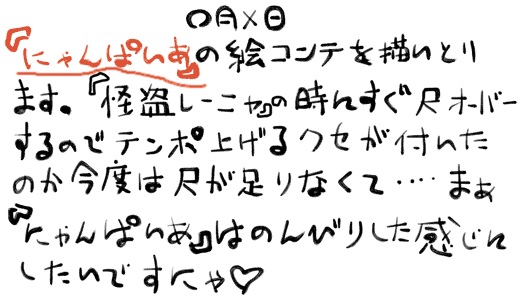 〇月×日
『にゃんぱいあ』の絵コンテを描いとり
ます。『怪盗レーニャ』の時んすぐ尺オーバー
するのでテンポ上げるクセが付いた
のか今度は尺が足りなくて‥‥まぁ
『にゃんぱいあ』はのんびりした感じに
したいですにゃ♡